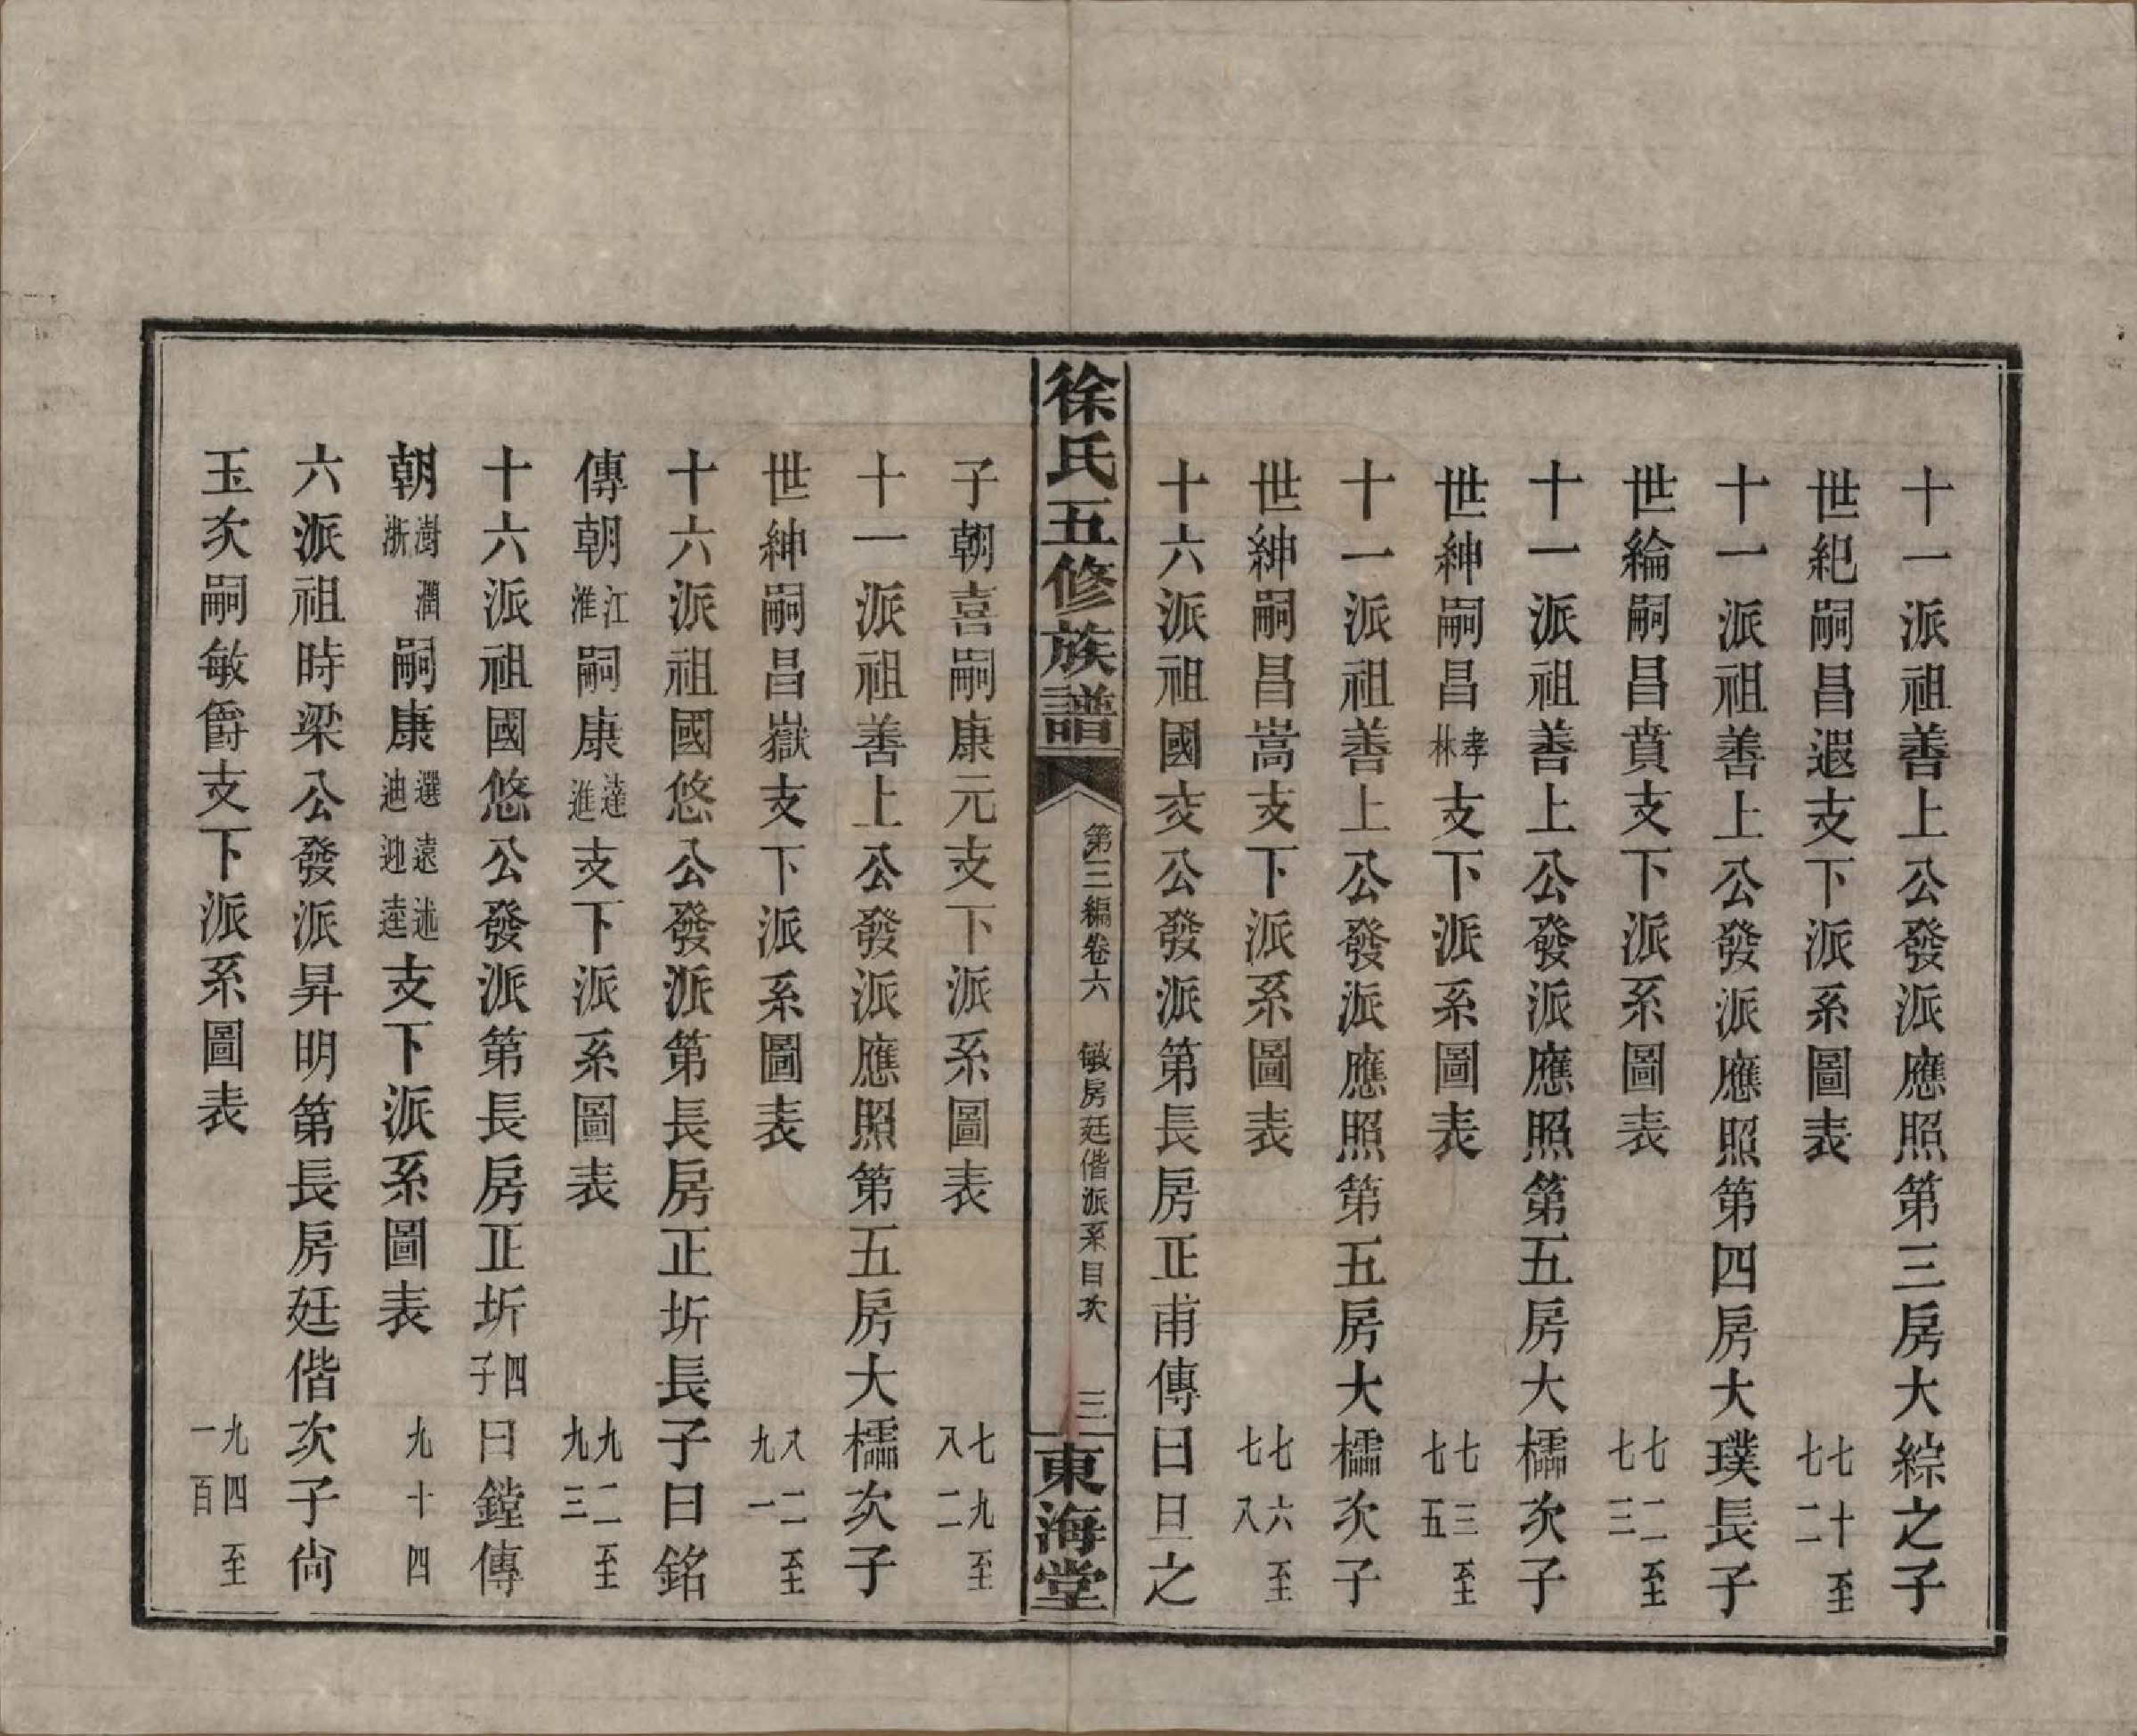 十一派祖善上公發派應照第三房大綜之子
世紀嗣昌遐支下派系圖表 七十至七二
十一派祖善上公發派應照第四房大璞長子
世綸嗣昌賁支下派系圖表 七二至七三
十一派祖善上公發派應照第五房大檽次子
世紳嗣昌孝林支下派系圖表 七三至七五
十一派祖善上公發派應照第五房大檽次子
世紳嗣昌嵩支下派系圖表 七六至七八
十六派祖國交公發派第長房正甫傳曰旦之
徐氏五修族譜 第三編卷六 敏房廷偕派系目次 三 東海堂
子朝喜嗣康元支下派系圖表 七九至八二
十一派祖善上公發派應照第五房大檽次子
世紳嗣昌嶽支下派系圖表 八二至九一
十六派祖國悠公發派第長房正圻長子曰銘
傳朝江淮嗣康達進支下派系圖表 九二至九三
十六派祖國悠公發派第長房正圻四子曰鏜傳
朝澍浙潤嗣康選迪遠迎述逵支下派系圖表 九十四
六派祖時梁公發派昇明第長房廷偕次子尙
玉次嗣敏爵支下派系圖表 九四至一百